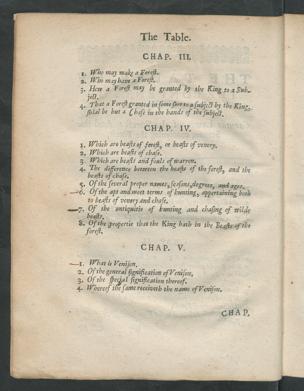 The Table.
CHAP. III.
1. Who may make a Forest.
2. Who may have a Forest.
3. How a Forest may be granted by the King to a Sub-
ject.
4. That a Forest granted in some sort to a subject by the King,
shal be but a Chase in the hands of the subject.
CHAP. IV.
1. Which are beasts of forest, or beasts of venery.
2. Which are beasts of chase.
3. Which are beasts and fouls of warren.
4. The difference between the beasts of the forest, and the
beasts of chase.
5. Of the several proper names, seasons, degrees, and ages.
6. Of the apt and meet terms of hunting, appertaining both
to beasts of venery and chase.
7. Of the antiquitie of hunting and chasing of wilde
beasts.
8. Of the propertie that the King hath in the Beasts of the
forest.
CHAP. V.
1. What is Venison.
2. Of the general signification of Venison.
3. Of the special signification thereof.
4. Whereof the same receiveth the name of Venison.
CHAP.